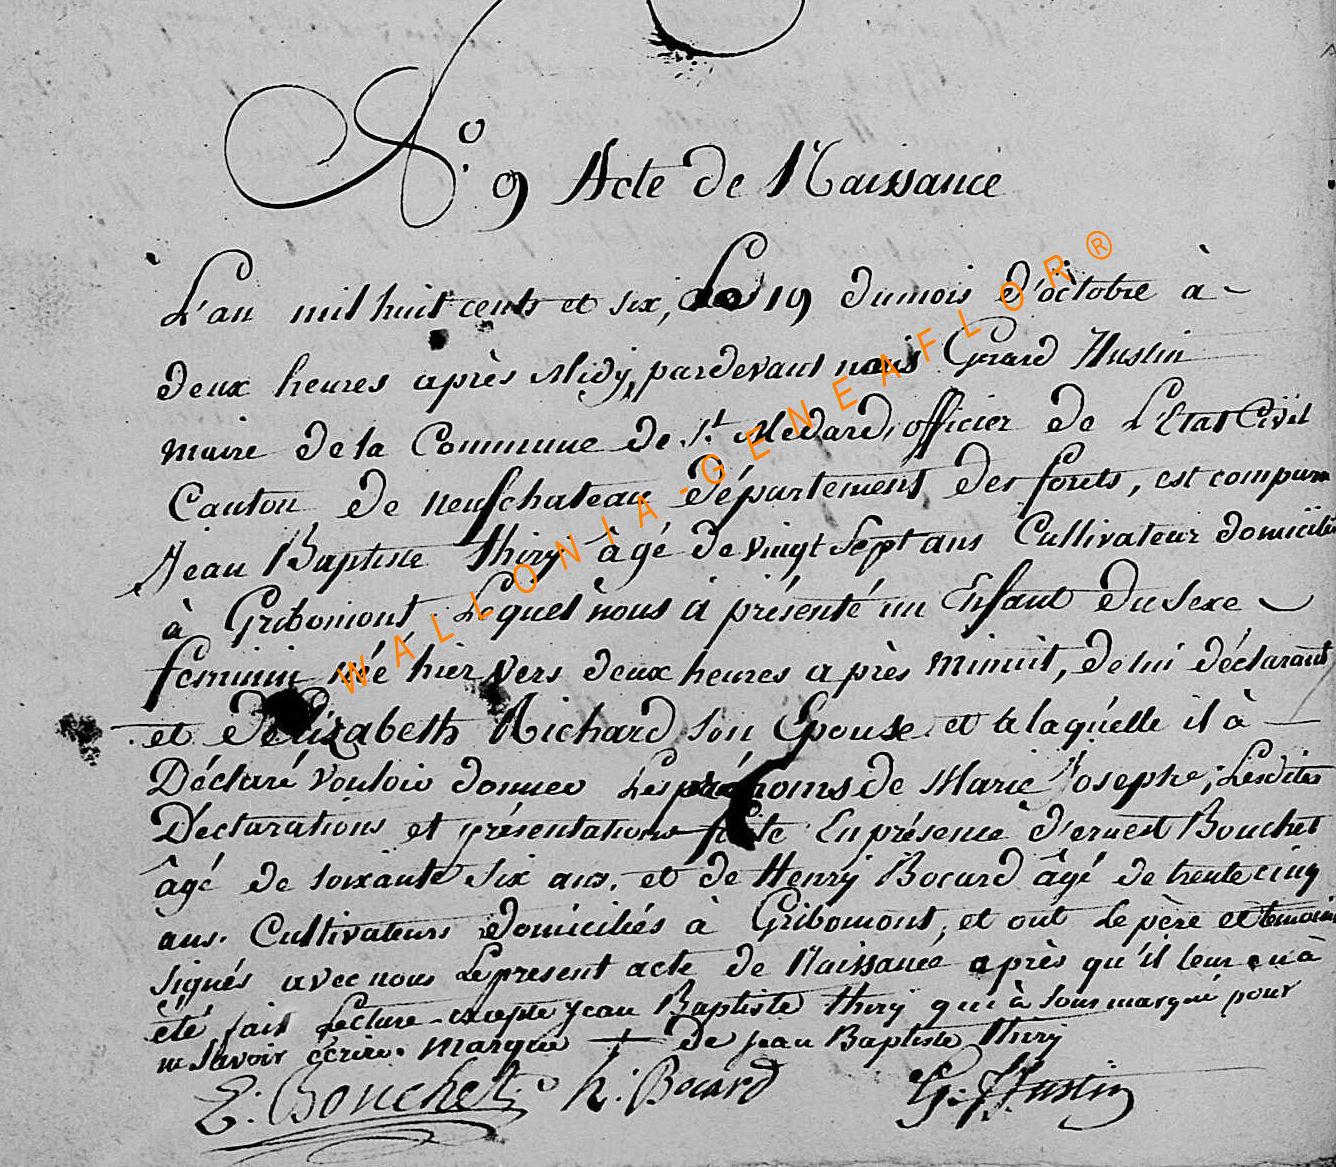 N.o 9 Acte de Naissance
L'an mil huit cents et six, Le 19 du mois d'octobre à
deux heures après Midy, pardevant nous Gerard Hustin
maire de la Commune de S.t Medard, officier de L'Etat Civil
Canton de neufchateau Département des forets, est comparu
Jean Baptiste Thiry âgé de vingt Sept ans Cultivateur domicilié
à Gribomont Lequel nous a présenté un Enfant du Sexe
feminin né hier vers deux heures après minuit, de lui déclarant
et D'Elizabeth Richard Son Epouse et a laquelle il à
Déclaré vouloir donner Les prénoms de Marie Josephe; Lesdites
Déclarations et présentations faite En présence d'ernest Bouchet
âgé de soixante six ans. et de Henry Bocard âgé de trente cinq
ans. Cultivateurs domiciliés à Gribomont, et ont Le père et temoins
signés avec nous Le present acte de Naissance après qu'il leur en à
été fait Lecture excepte Jean Baptiste Thiry qui à Sousmarqué pour
ne Savoir écrire. marque + de Jean Baptiste Thiry
E. Bouchet h. Bocard G. Hustin
WALLONIA-GENEAFLOR®